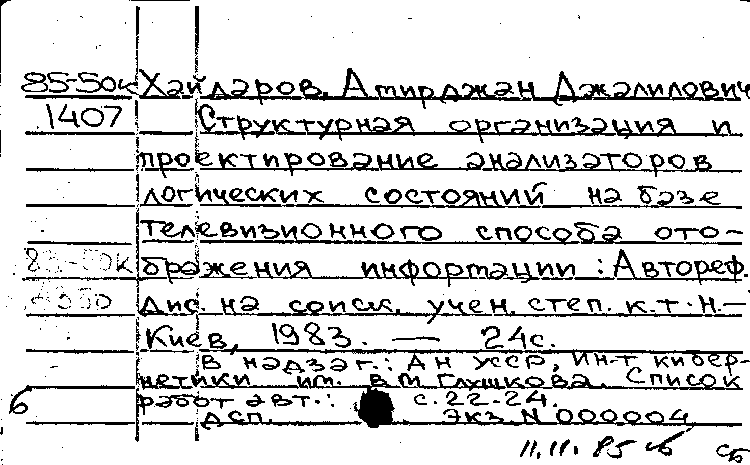 85-50к Хайдаров, Амирджан Джалилович
1407 Структурная организация и
проектирование анализаторов
логических состояний на базе
телевизионного способа ото-
83-50к бражения информации : Автореф.
дис. на соиск. учен. степ. к.т.н.—
Киев, 1983. — 24с.
В надзаг.: АН УССР, Ин-т кибер-
нетики им. В М Глушкова. Список
б работ авт.: с. 22-24.
ДСП. Экз. N 000004
11.11.85